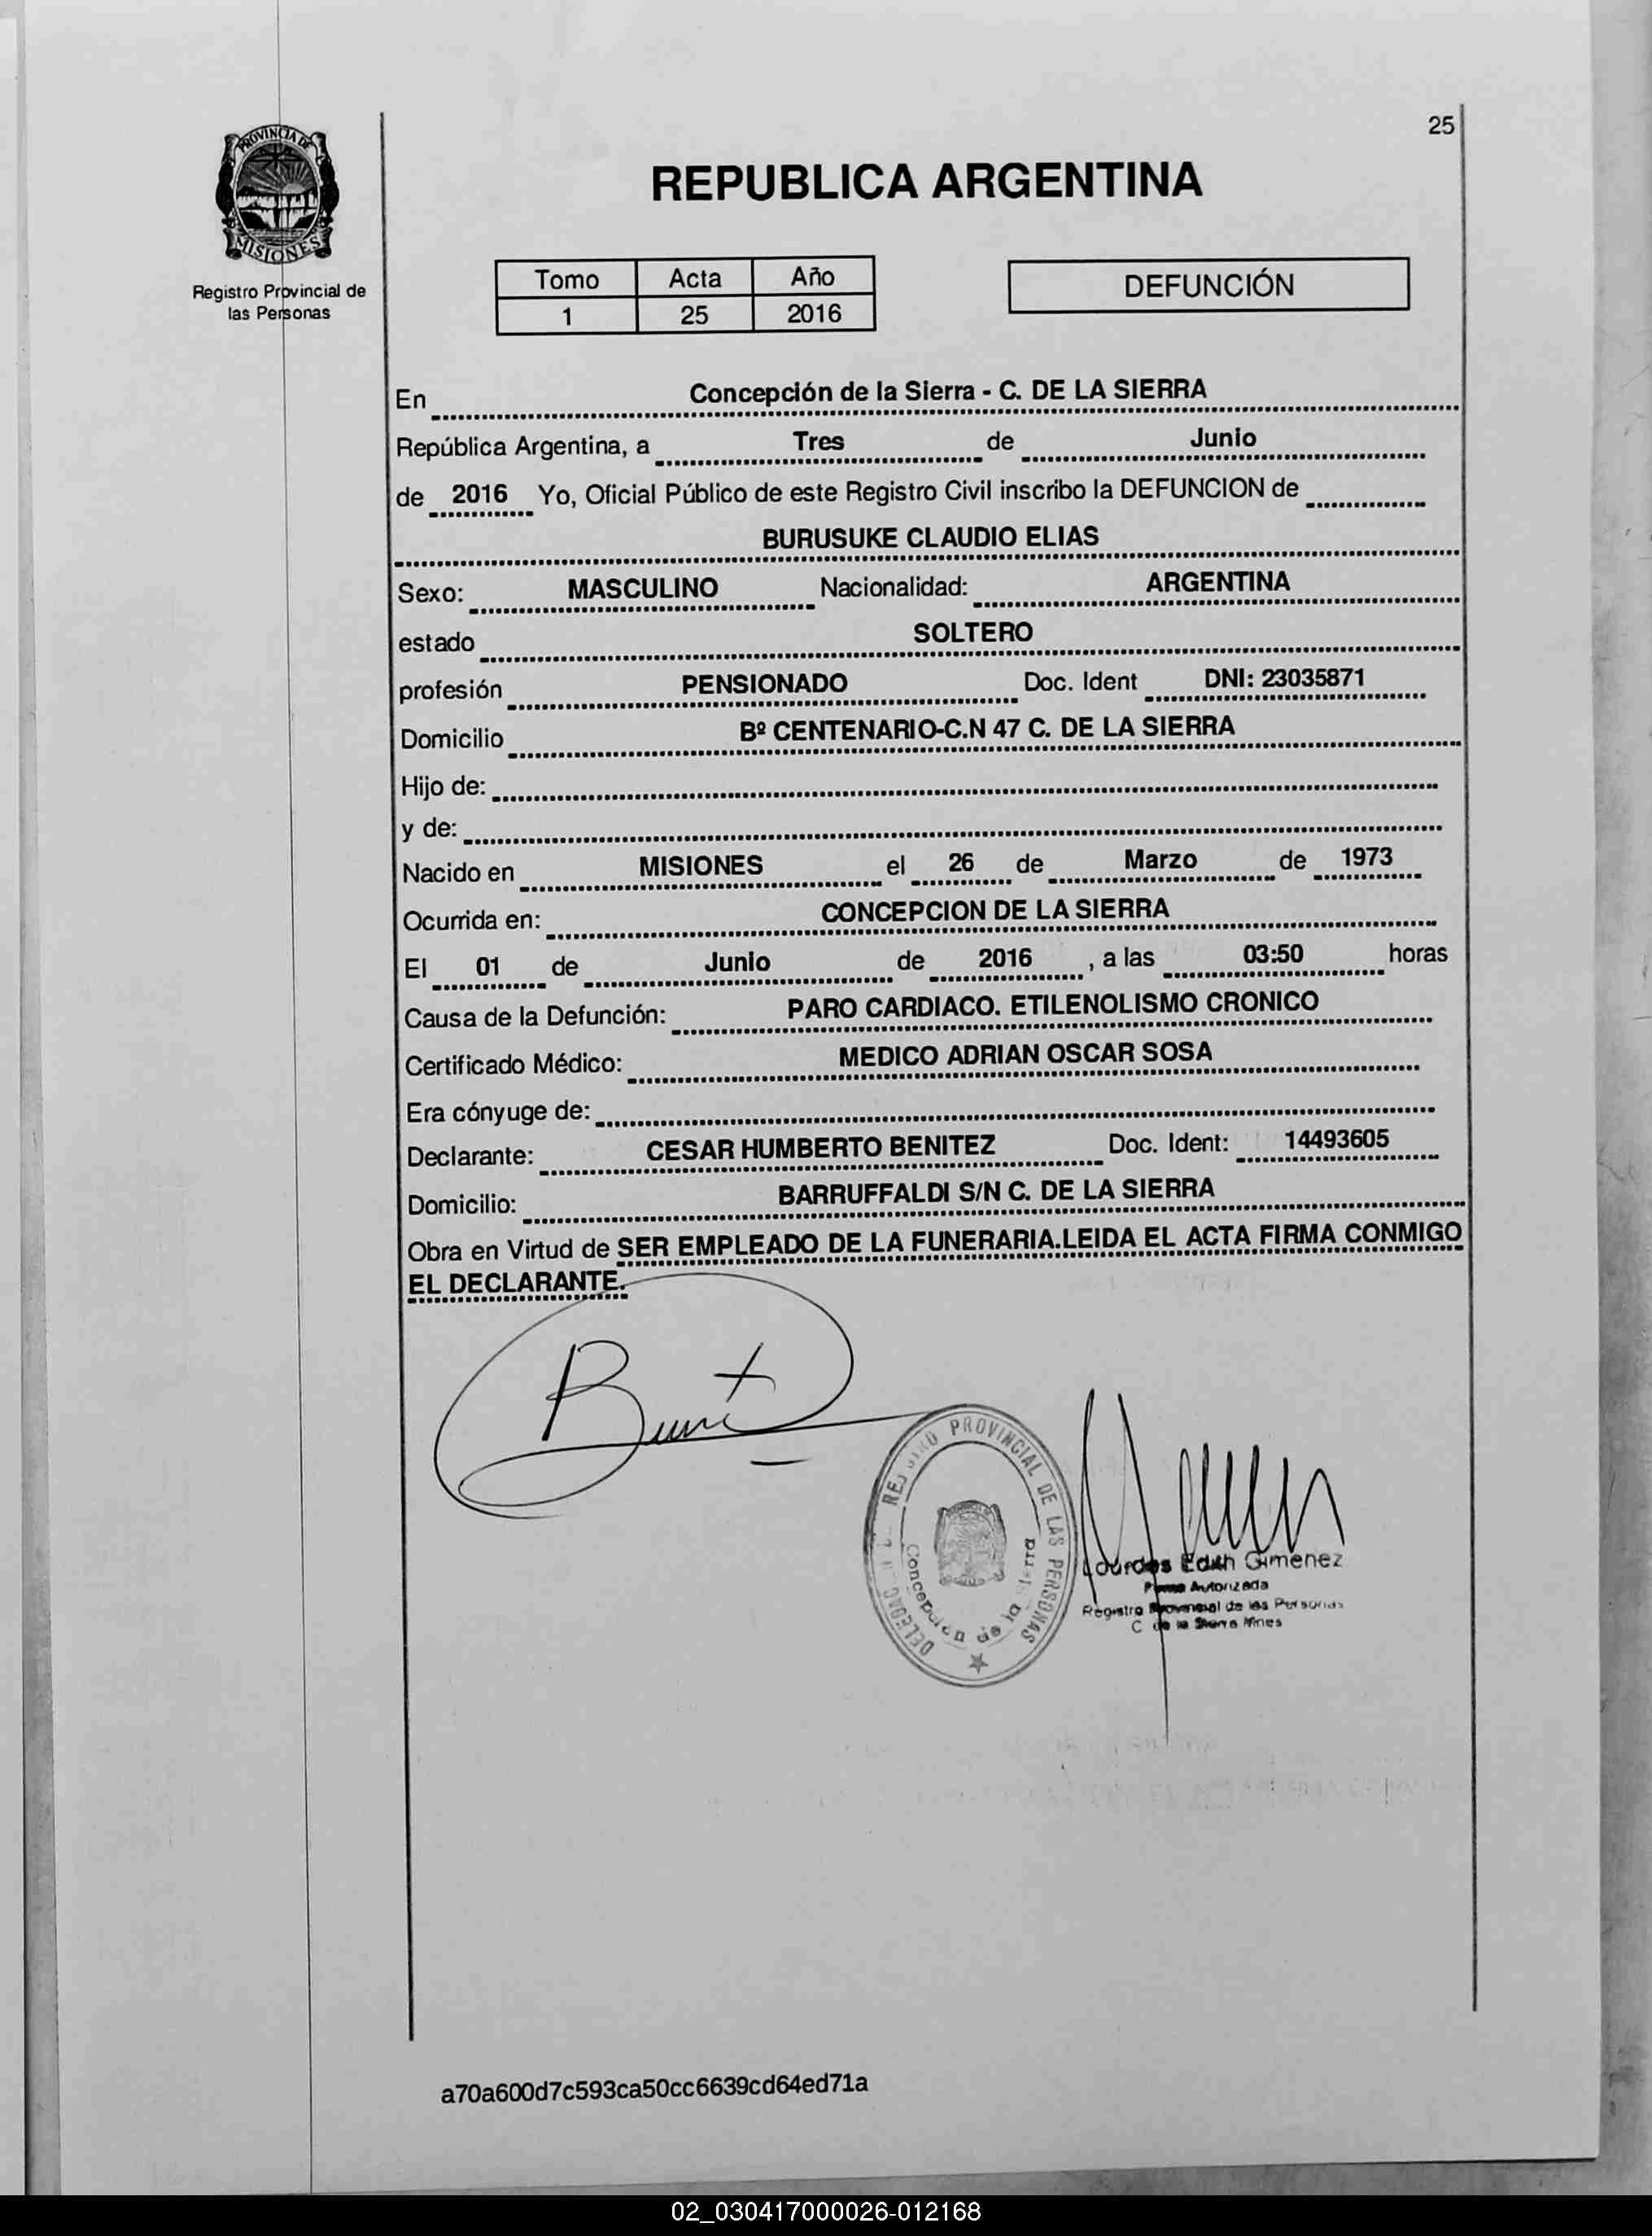 25
PROVINCIA DE
MISIONES
Registro Provincial de
las Personas
REPUBLICA ARGENTINA
Tomo Acta Año
1 25 2016
DEFUNCIÓN
En Concepción de la Sierra - C. DE LA SIERRA
República Argentina, a Tres de Junio
de 2016 Yo, Oficial Público de este Registro Civil inscribo la DEFUNCION de
BURUSUKE CLAUDIO ELIAS
Sexo: MASCULINO Nacionalidad: ARGENTINA
estado SOLTERO
profesión PENSIONADO Doc. Ident DNI: 23035871
Domicilio Bº CENTENARIO-C.N 47 C. DE LA SIERRA
Hijo de:
y de:
Nacido en MISIONES el 26 de Marzo de 1973
Ocurrida en: CONCEPCION DE LA SIERRA
El 01 de Junio de 2016 , a las 03:50 horas
Causa de la Defunción: PARO CARDIACO. ETILENOLISMO CRONICO
Certificado Médico: MEDICO ADRIAN OSCAR SOSA
Era cónyuge de:
Declarante: CESAR HUMBERTO BENITEZ Doc. Ident: 14493605
Domicilio: BARRUFFALDI S/N C. DE LA SIERRA
Obra en Virtud de SER EMPLEADO DE LA FUNERARIA.LEIDA EL ACTA FIRMA CONMIGO
EL DECLARANTE.
PROVINCIAL DE LAS PERSONAS
Concepción de la Sierra
Lourdes Edith Gimenez
Firma Autorizada
Registro Provincial de las Personas
C de la Sierra Mnes
a70a600d7c593ca50cc6639cd64ed71a
02_030417000026-012168